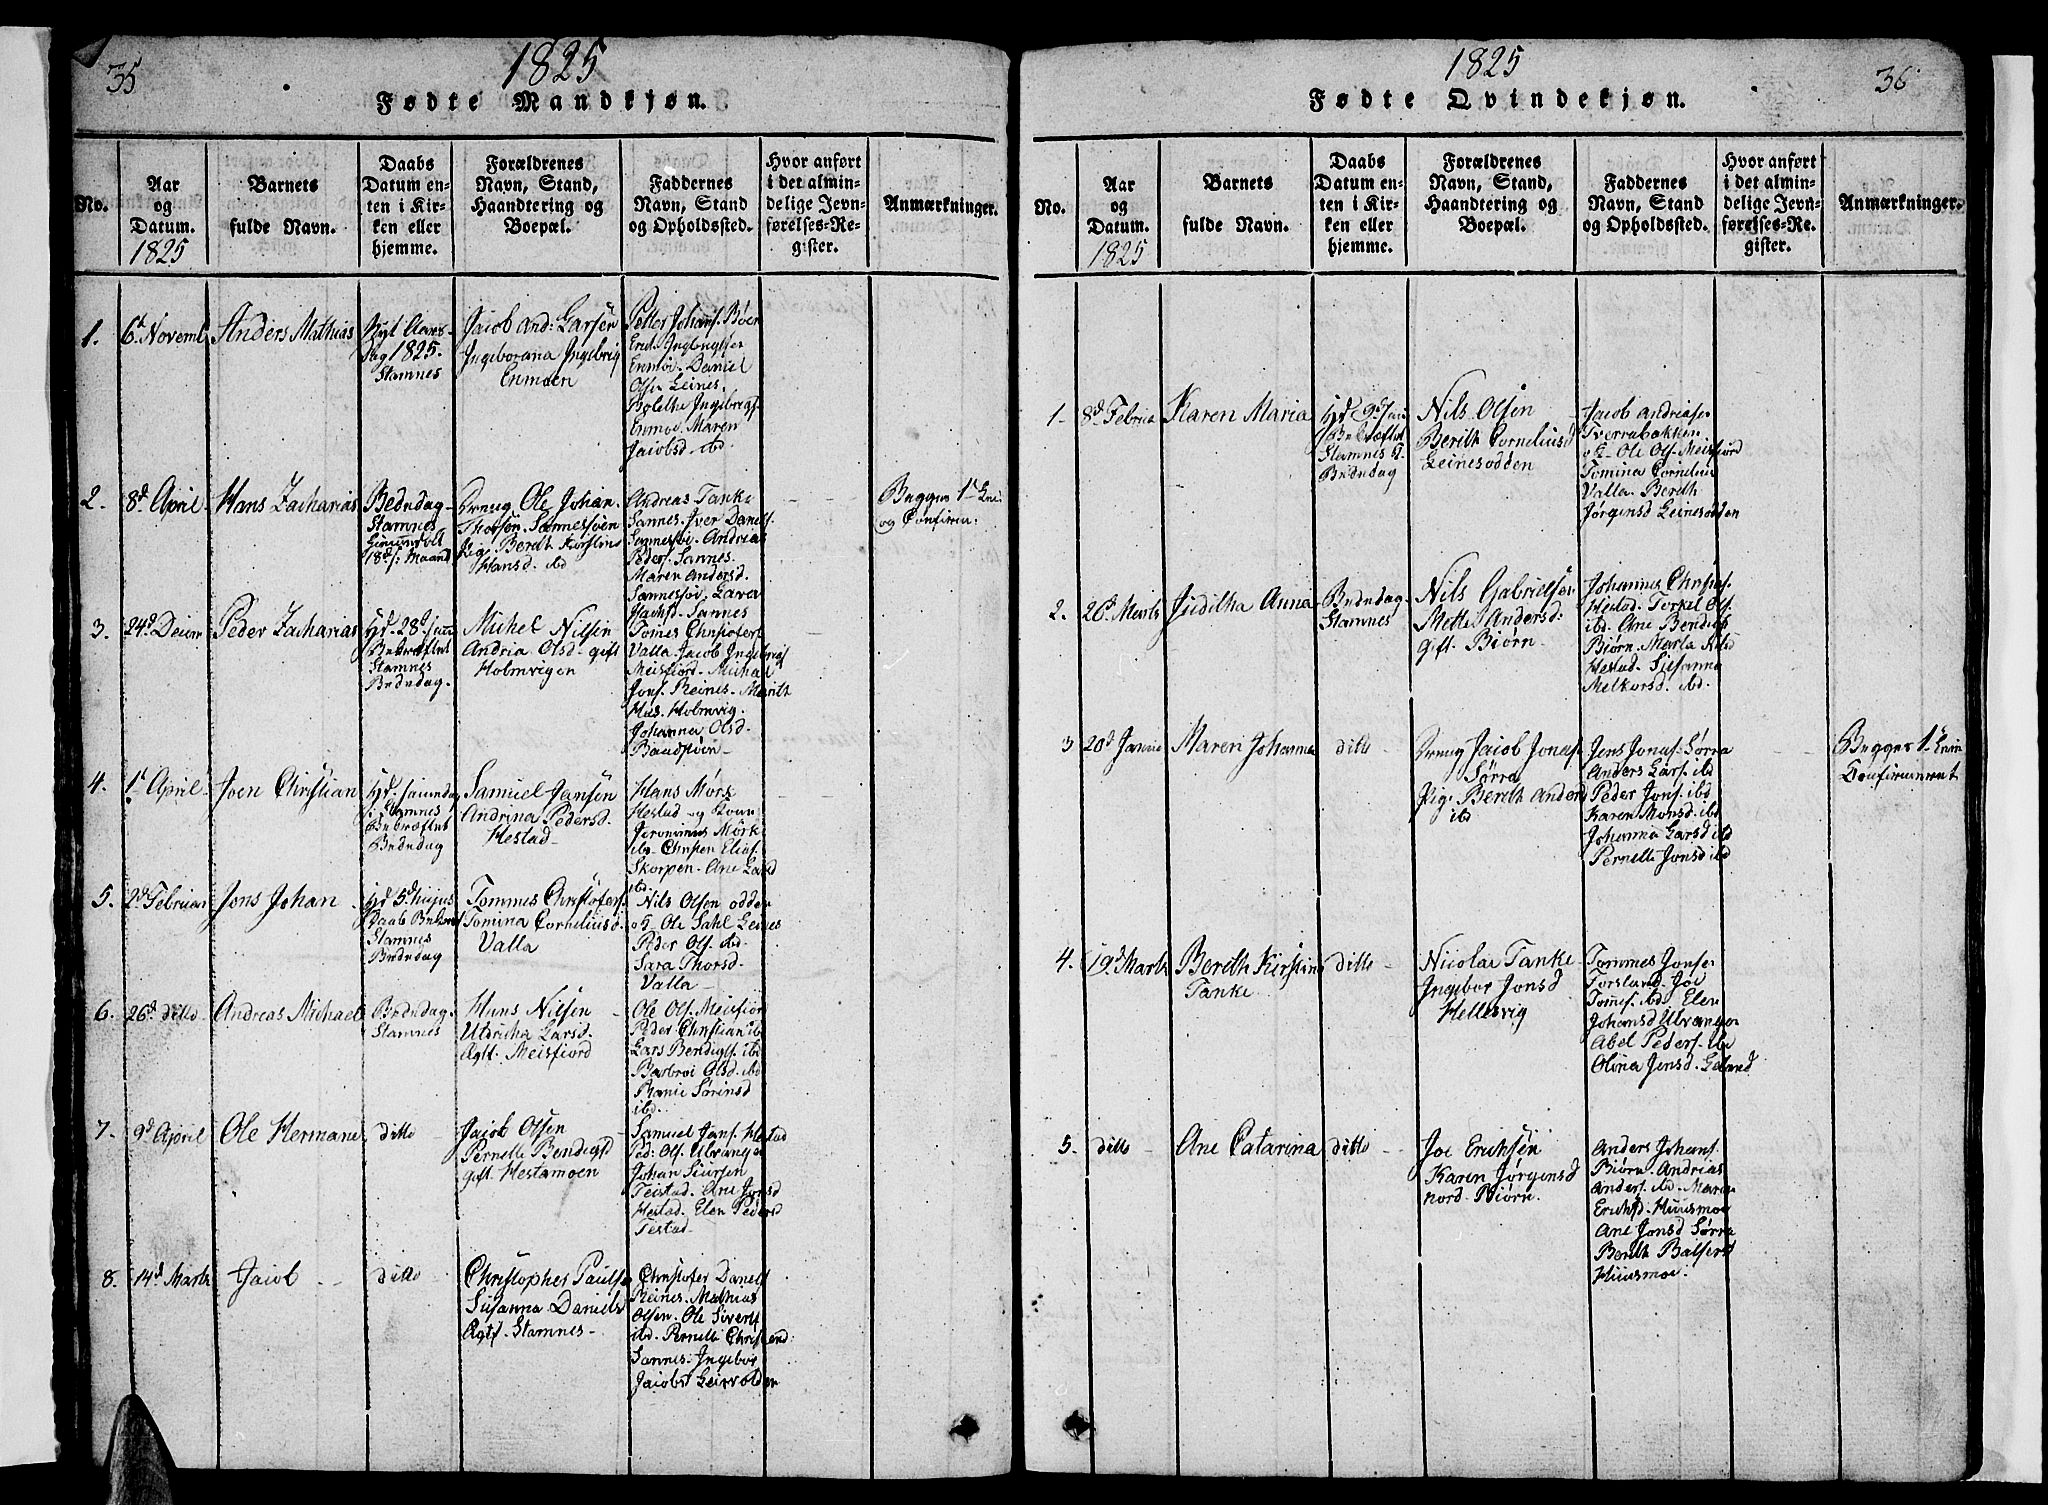 35
1825
Fødte Mandkjøn.
No.
Aar
og
Datum.
1825
Barnets
fulde Navn.
Daabs
Datum en-
ten i Kir-
ken eller
hjemme.
Forældrenes
Navn, Stand,
Haandtering og
Boepæl.
Faddernes
Navn, Stand
og Opholdssted.
Hvor anført
i det almin-
delige Jevn-
førelses-Re-
gister.
Anmærkninger.
1.
6t Novemb
Anders Mathias
Nyt Aars-
dag 1825.
Stamnes
Jacob And: Larsen
Ingeborana Ingebrig
Enmoen
Petter Johans. Bøen
Enmoe. Daniel
Ols. Leines.
Bolethe Ingebrigs.
Enmoe. Maren
Jacobsd. ibd
2.
8d April
Hans Zacharias
Bededag
Stamnes
18d s: Maand
Dreng Ole Johan
Thorsøn. Sannessøen
Pig. Berith Kirstine
Hansd. ibd
Andreas Tanke
Sannes. Iver Danels.
Sannessøi. Andreas
Peders. Sannes.
Maren Andersd.
Sannessøi. Lava
Sannes
Begges 1t Leie
og Confirm:
3.
24d Decem
Peder Zacharias
Hd. 28d
Bekræftet
Stamnes
Bededag.
Michel Nilsen
Andria Olsd. gift
Holmvigen
Tomes Christofers.
Valla. Jacob Ingebrigs
Meisfiord. Michael
Jons. Reines. Merith
Holmvig.
Johanna Olsd.
4.
1t April
Joen Christian
Hd.
Stamnes
Bekræftet
Bededag
Samuel Jansen
Andrina Pedersd.
Hestad
Hans Mørk
Hestad og
Jeronimus Mørk
ibd. Chrsten Elias.
Skorpen. Ane Larsd
ibd.
5.
2d Februar
Jons Johan
Hd. 5d hujus
Daab
Stamnes
Bededag
Tommes Christofers.
Tomina Corneliusd.
Valla
Nils Olsen odden
Ole Dahl Leines
Peder Ols. ibd.
Sara Thorsd.
Valla
6.
26d ditto
Andreas Michael
Bededag
Stamnes
Hans Nilsen
Uldricha Larsd.
Agt. Meisfiord
Ole Ols. Meisfior
Peder Christian ibd
Lars Bendigts. ibd
Barbroe Olsd. ibd
Sørensd
ibd.
7.
9d April
Ole Hermann
ditto
Jacob Olsen
Pernelle Bendigtd
gift. Hestamoen
Samuel Jans. Hestad
Ped: Ols. Ulvangen
Johan Siursen
Teistad. Ane Jonsd
Hestad. Elen Pedersd
Testad
8.
14d Marts
Jacob
ditto
Christopher Pauls
Susanna Daniels
Agtf. Stamnes
Christofer Danels
Reines. Mathias
Olsen. Ole Sivert
ibd. Pernelle Christiand:
Sannes. Ingebor
Jacobs Leirvolden
1825
36
Fødte Qvindekjøn.
No.
Aar
og
Datum.
1825
Barnets
fulde Navn.
Daabs
Datum en-
ten i Kir-
ken eller
hjemme.
Forældrenes
Navn, Stand,
Haandtering og
Boepæl.
Faddernes
Navn, Stand
og Opholdssted.
Hvor anført
i det almin-
delige Jevn-
førelses-Re-
gister.
Anmærkninger.
1.
8d Februa
Karen Maria
Hd 9d
Bekræftet
Stamnes
Bededag
Nils Olsen
Berith Corneliusd
Leinesodden
Jacob Andreasen
Tverrabakken
Ole Ols. Meisfiord
Tomina Cornelius
Valla. Berith
Jørgensd Leinesodden
2.
26d Marts
Juditha Anna
Bededag
Stamnes
Nils Gabrielsen
Mette Andersd:
gift. Biørn
Johannes Christ.
Hestad. Torkel Ols.
ibd. Ane Bendigt
Biørn. Marta
Hestad. Susanna
Melkorsd. ibd.
3
20d Janua
Maren Johanna
ditto
Dreng Jacob Jonas.
Sørra
Pig. Berith Andersd
ibd
Jens Jonas. Sørra
Anders Lars. ibd
Peder Jons. ibd
Karen Monsd. ibd
Johanna Larsd ibd
Pernelle Jonsd ibd
Begges 1t Leie
Confirmeret
4.
19d Marts
Berith Kirstina
Tanke
ditto
Nicolai Tanke
Ingebor Jonsd.
Hellesvig
Tommes Jonsen
Forsland. Joe
Tomes. ibd Elen
Johansd Ulvangen
Abel Peders. ibd
Olina Jensd. Leland
5.
ditto
Ane Catarina
ditto
Joe Erichsen
Karen Jørgensd
nord. Biørn.
Anders Johans.
Biørn. Andrias
Anders. ibd. Maren
Erichsd. Huusmoe
Ane Jonsd Sørra
Berith Baltsersd
Huusmoe.